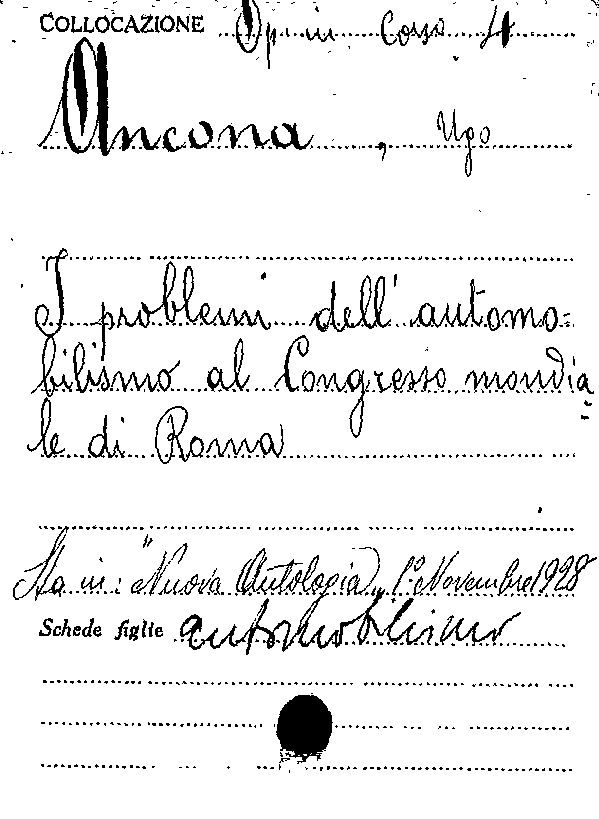 COLLOCAZIONE Op. in Corso 4
Ancona, Ugo
I problemi dell'automo=
bilismo al Congresso mondia
=
le di Roma
Sta in: "Nuova Antologia„ 1.° Novembre 1928
Schede figlie automobilismo